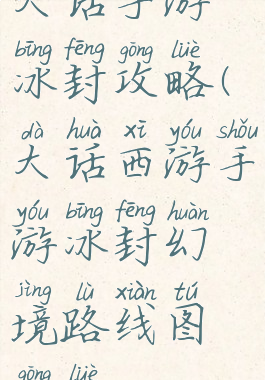 大话手游
bīng fēng gōng lüè
冰封攻略(
dà huà xī yóu shǒu
大话西游手
yóu bīng fēng huàn
游冰封幻
jìng lù xiàn tú
境路线图
gōng lüè